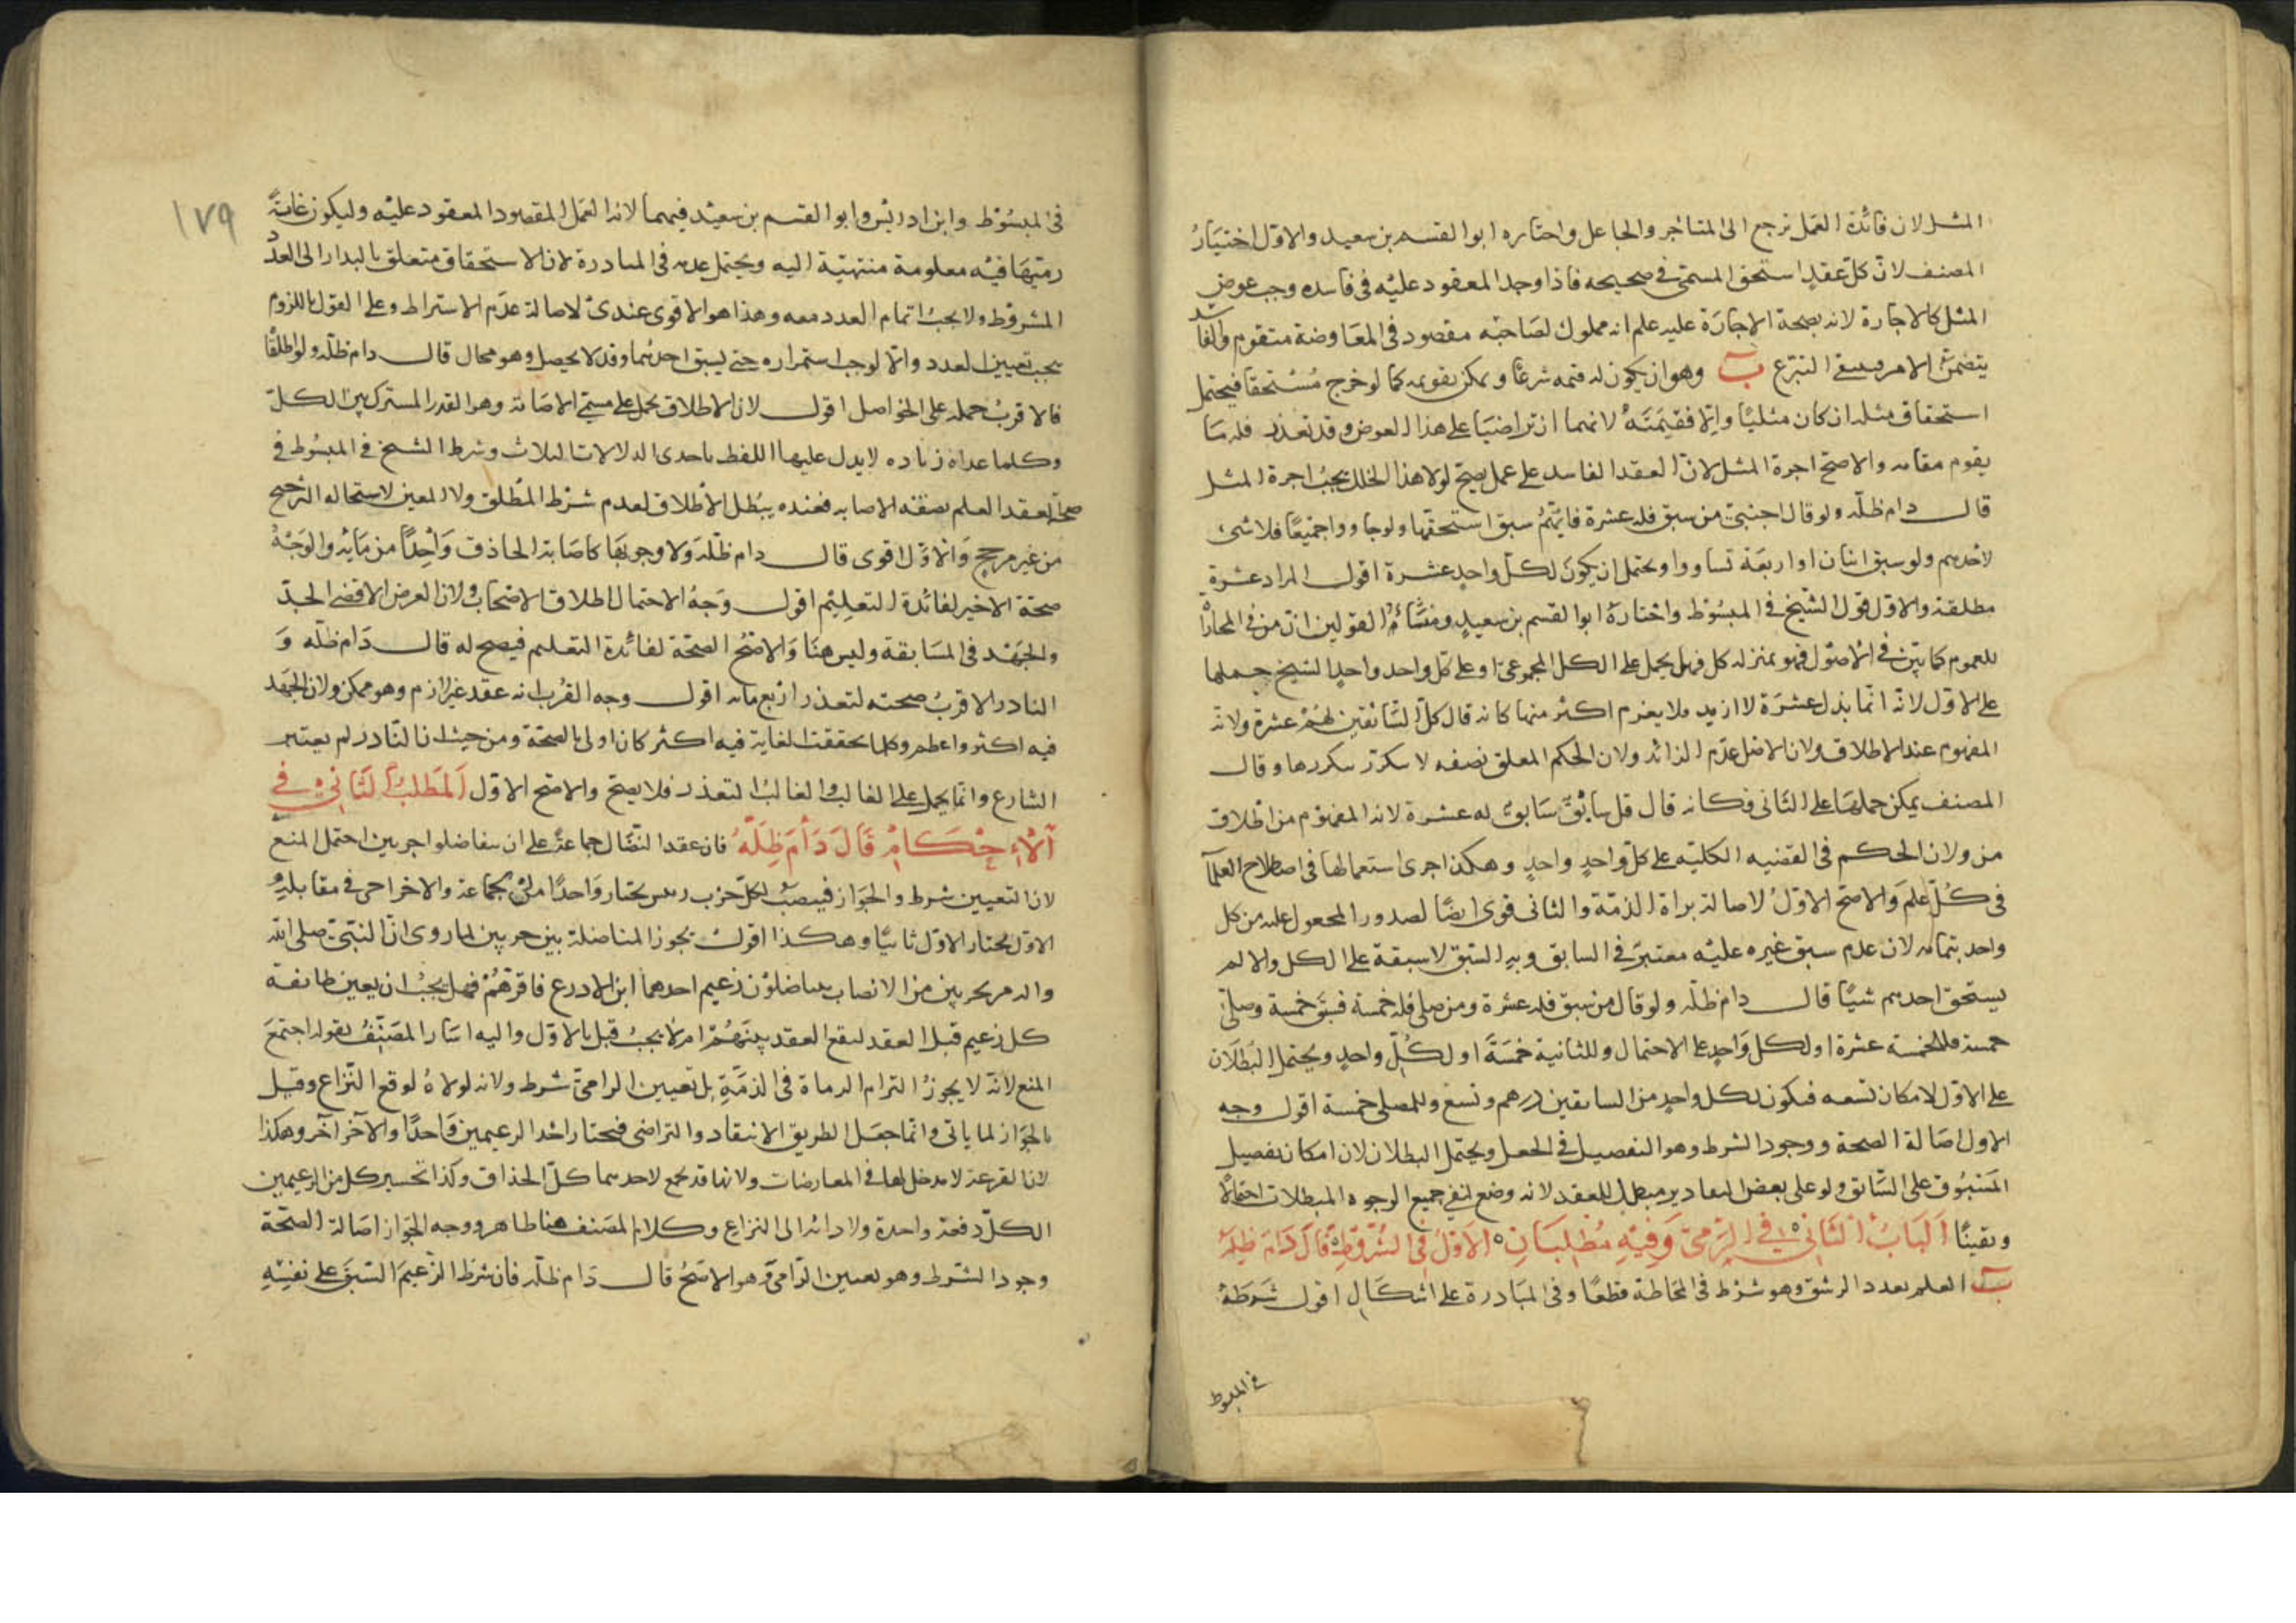 المثل لان فائدة العمل ترجع الى المتاخر والجاعل واختاره ابوا القسم بن سعيد والاول اختيار
المصنف لان كل عقد استحق المسمى في صحيحه فاذا وجد المعقود عليه في فاسده وجب عوض
المثل كالاجارة لانه بصحة الاجارة عليه علم انه مملوك لصاحبه مقصود في المعاوضة متقوم والفاسد
يتضمن الامر وينفي التبرع ب وهو ان يكون له قيمه شرعا ويمكن تقويمه كما لو خرج مستحقا فيحتمل
استحقاق مثله ان كان مثليا والا فقيمته لانهما ان تراضيا على هذا العوض وقد تعذر فله ما
يقوم مقامه والاصح اجرة المثل لان العقد الفاسد على عمل يصح لولا هذا الخلل يجب اجرة المثل
قال دام ظله ولو قال اجنبي من سبق فله عشرة فايهم سبق استحقها ولو جاووا جميعا فلا شئ
لاحدهم ولو سبق اثنان او اربعة تساووا ويحتمل ان يكون لكل واحد عشرة اقول المراد عشرة
مطلقة والاول قول الشيخ في المبسوط واختاره ابوا القسم بن سعيد ومنشأ القولين ان من في المجازاة
للعموم كما بين في الاصول فهو بمنزله كل فهل يحمل على الكل المجموعي او على كل واحد واحد الشيخ جملها
على الاول لانه انما بذل عشرة لا ازيد فلا يغرم اكثر منها كانه قال كل السابقين لهم عشرة ولانه
المفهوم عند الاطلاق ولان الاصل عدم الزائد ولان الحكم المعلق بصفه لا يتكرر بتكررها وقال
المصنف يمكن حملها على الثاني فكانه قال قل سابق سابق له عشرة لانه المفهوم من اطلاق
من ولان الحكم في القضيه الكليه على كل واحد واحد وهكذا جرى استعمالها في اصطلاح العلماء
في كل علم والاصح الاول لاصالة براة الذمة والثاني قوى ايضا لصدور المجعول عليه من كل
واحد بتمامه لان عدم سبق غيره عليه معتبر في السابق وبه السبق لا سبقة على الكل والا لم
يستحق احدهم شيا قال دام ظله ولو قال من سبق فله عشرة ومن صلى فله خمسة فسبق خمسة وصلى
خمسة فللخمسة عشرة او لكل واحد على الاحتمال وللثانية خمسة او لكل واحد ويحتمل البطلان
على الاول لامكان تسعه فيكون لكل واحد من السابقين درهم وتسع وللمصلى خمسة اقول وجه
الاول اصالة الصحة ووجود الشرط وهو التفصيل في الجعل ويحتمل البطلان لان امكان تفضيل
المسبوق على السابق ولو على بعض التقادير مبطل للعقد لانه وضع لنفي جميع الوجوه المبطلات احتمالا
ويقينا الباب الثاني في الرمى وفيه مطلبان الاول في الشروط قال دام ظله
ب العلم بعدد الرشق وهو شرط في المحاطة قطعا وفي المبادرة على اشكال اقول شرطه
في المبسوط
١٧٩
في المبسوط وابن ادريس وابوا القسم بن سعيد فيهما لانه العمل المقصود المعقود عليه وليكون غاية
رميهما فيه معلومة منتهية اليه ويحتمل عدمه في المبادرة لان الاستحقاق متعلق بالبدار الى العدد
المشروط ولا يجب اتمام العدد معه وهذا هو الاقوى عندى لاصالة عدم الاشتراط وعلى القول باللزوم
يجب تعيين العدد والا لوجب استمراره حتى يسبق احدهما وقد لا يحصل وهو محال قال دام ظله ولو اطلقا
فالاقرب حمله على الخواصل اقول لان الاطلاق يحمل على مسمى الاصابة وهو القدر المشترك بين الكل
وكلما عداه زياده لا يدل عليها اللفظ باحدى الدلالات الثلاث وشرط الشيخ في المبسوط في
صحة العقد العلم بصفة الاصابه فعنده يبطل الاطلاق لعدم شرط المطلق ولا المعين لاستحاله الترجيح
من غير مرجح والاول اقوى قال دام ظله ولا وجوبها كاصابة الحاذق واحدا من مايه والوجه
صحة الاخير لفائدة التعليم اقول وجه الاحتمال اطلاق الاصحاب ولان الغرض الاقصى الجد
والجهد في المسابقة وليس هنا والاصح الصحة لفائدة التعليم فيصح له قال دام ظله و
النادر الاقرب صحته لتعذر اربع مايه اقول وجه القرب انه عقد غير لازم وهو ممكن ولان الجهد
فيه اكثر واعظم وكلما تحققت الغاية فيه اكثر كان اولى بالصحة ومن حيث ان النادر لم يعتبره
الشارع وانما يحمل على الغالب والغالب التعذر فلا يصح والاصح الاول المطلب الثاني في
الاحكام قال دام ظله فان عقد النضال جماعة على ان يتناضلوا حزبين احتمل المنع
لان التعيين شرط والجواز فينصب لكل حزب رئيس يختار واحدا من الجماعة والاخر اخر في مقابله ثم
الاول يختار الاول ثانيا وهكذا اقول يجوز المناضلة بين حزبين لما روى ان النبي صلى الله
واله مر بحزبين من الانصار يتناضلون زعيم احدهما ابن الادرع فاقرهم فهل يجب ان يعين طائفة
كل زعيم قبل العقد ليقع العقد بينهم ام لا يجب قيل بالاول واليه اشار المصنف بقوله احتمل
المنع لانه لا يجوز التزام الرماة في الذمة بل تعيين الرامي شرط ولانه لولاه لوقع النزاع وقيل
بالجواز لما ياتي وانما جعل الطريق الانتقاد والتراضى فيختار احد الزعيمين واحدا والآخر آخر وهكذا
لان القرعة لا مدخل لها في المعاوضات ولانها قد تجمع لاحدهما كل الحذاق وكذا تخيير كل من الزعيمين
الكل دفعة واحدة ولادائه الى النزاع وكلام المصنف هنا ظاهر ووجه الجواز اصالة الصحة
وجود الشرط وهو تعيين الرامي وهو الاصح قال دام ظله فان شرط الزعيم السبق على نفسه